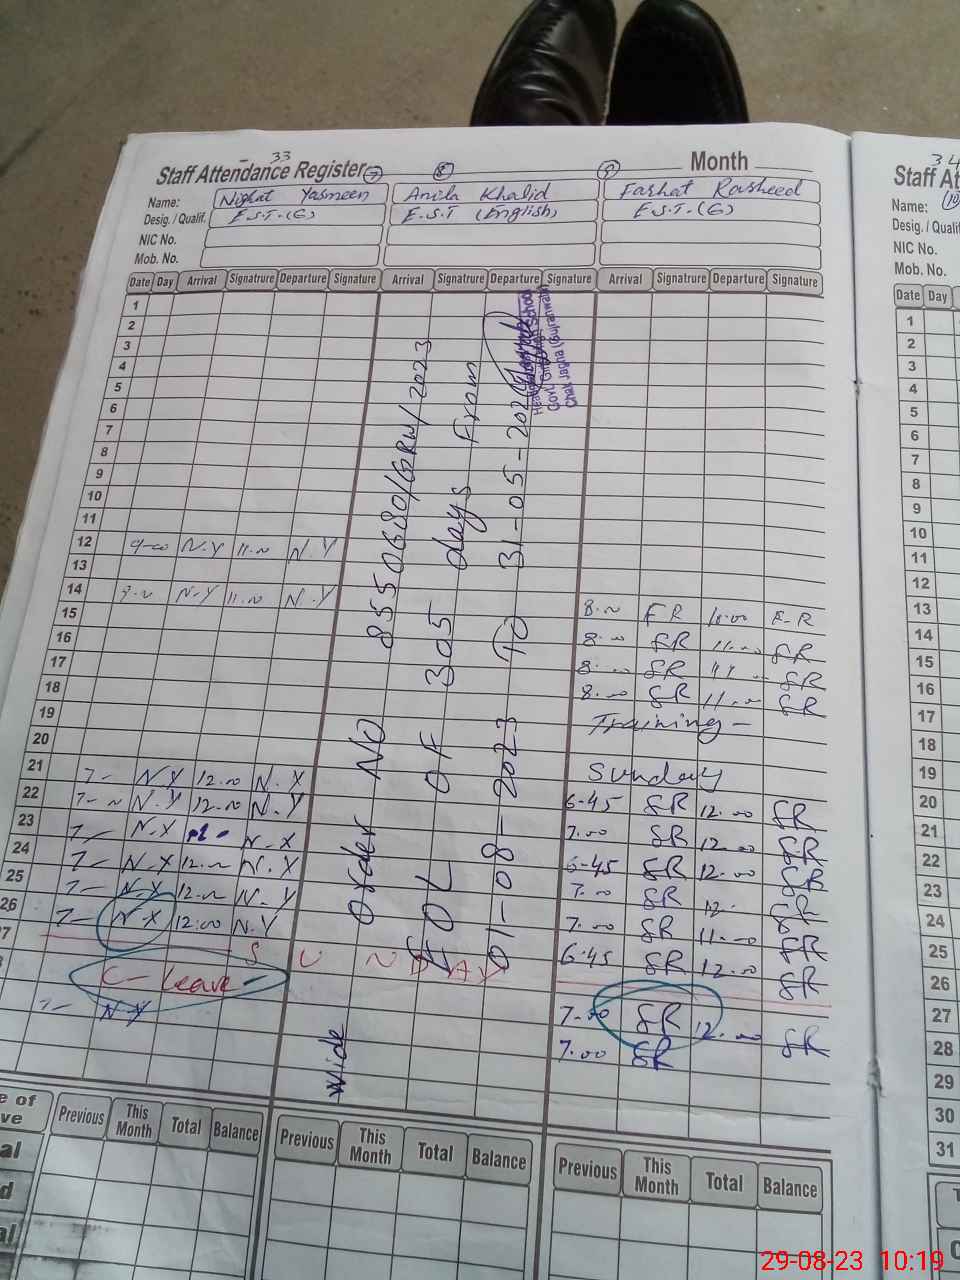 33
34
Staff Attendance Register Month
Staff At
7 8 9
Name: Nighat Yasmeen Anila Khalid Farhat Rasheed
Name: 10
Desig. / Qualif. E.S.T.(G) E.S.T (English) E.S.T.(G)
Desig. / Qualif
NIC No.
NIC No.
Mob. No.
Mob. No.
Date Day Arrival Signatrure Departure Signature Arrival Signatrure Departure Signature Arrival Signatrure Departure Signature
Date Day
1
2
3
4
5
6
7
8
9
10
11
12 9-00 N.Y 11.00 N.Y
13
14 9.00 N-Y 11.00 N.Y 8.00 FR 11.00 F-R
15 8.00 FR 11.00 FR
16 8.00 FR 11.00 FR
17 8.00 FR 11.00 FR
18 Training -
19
20 Sunday
21 7- N.Y 12.00 N.Y 6-45 FR 12.00 FR
22 7-00 N.Y 12.00 N.Y 7.00 FR 12.00 FR
23 7- N.Y N-Y 6-45 FR 12.00 FR
24 7- N-Y 12.00 N.Y 7.00 FR 12. FR
25 7- N.Y 12.00 N.Y 7.00 FR 11.00 FR
26 7- N-Y 12:00 N.Y 6-45 FR 12.00 FR
27 SUNDAY
C-Leave 7-00 FR 12.00 FR
7- N-Y 7.00 FR
Wide Order NO 8550680/GRW/2023
EOL OF 305 days From
01-08-2023 TO 31-05-202
Govt. Girls High School
Chak Jagna (Gujranwala)
1
2
3
4
5
6
7
8
9
10
11
12
13
14
15
16
17
18
19
20
21
22
23
24
25
26
27
28
29
30
31
e of
ve
Previous This Month Total Balance Previous This Month Total Balance Previous This Month Total Balance
al
d
al
29-08-23 10:19